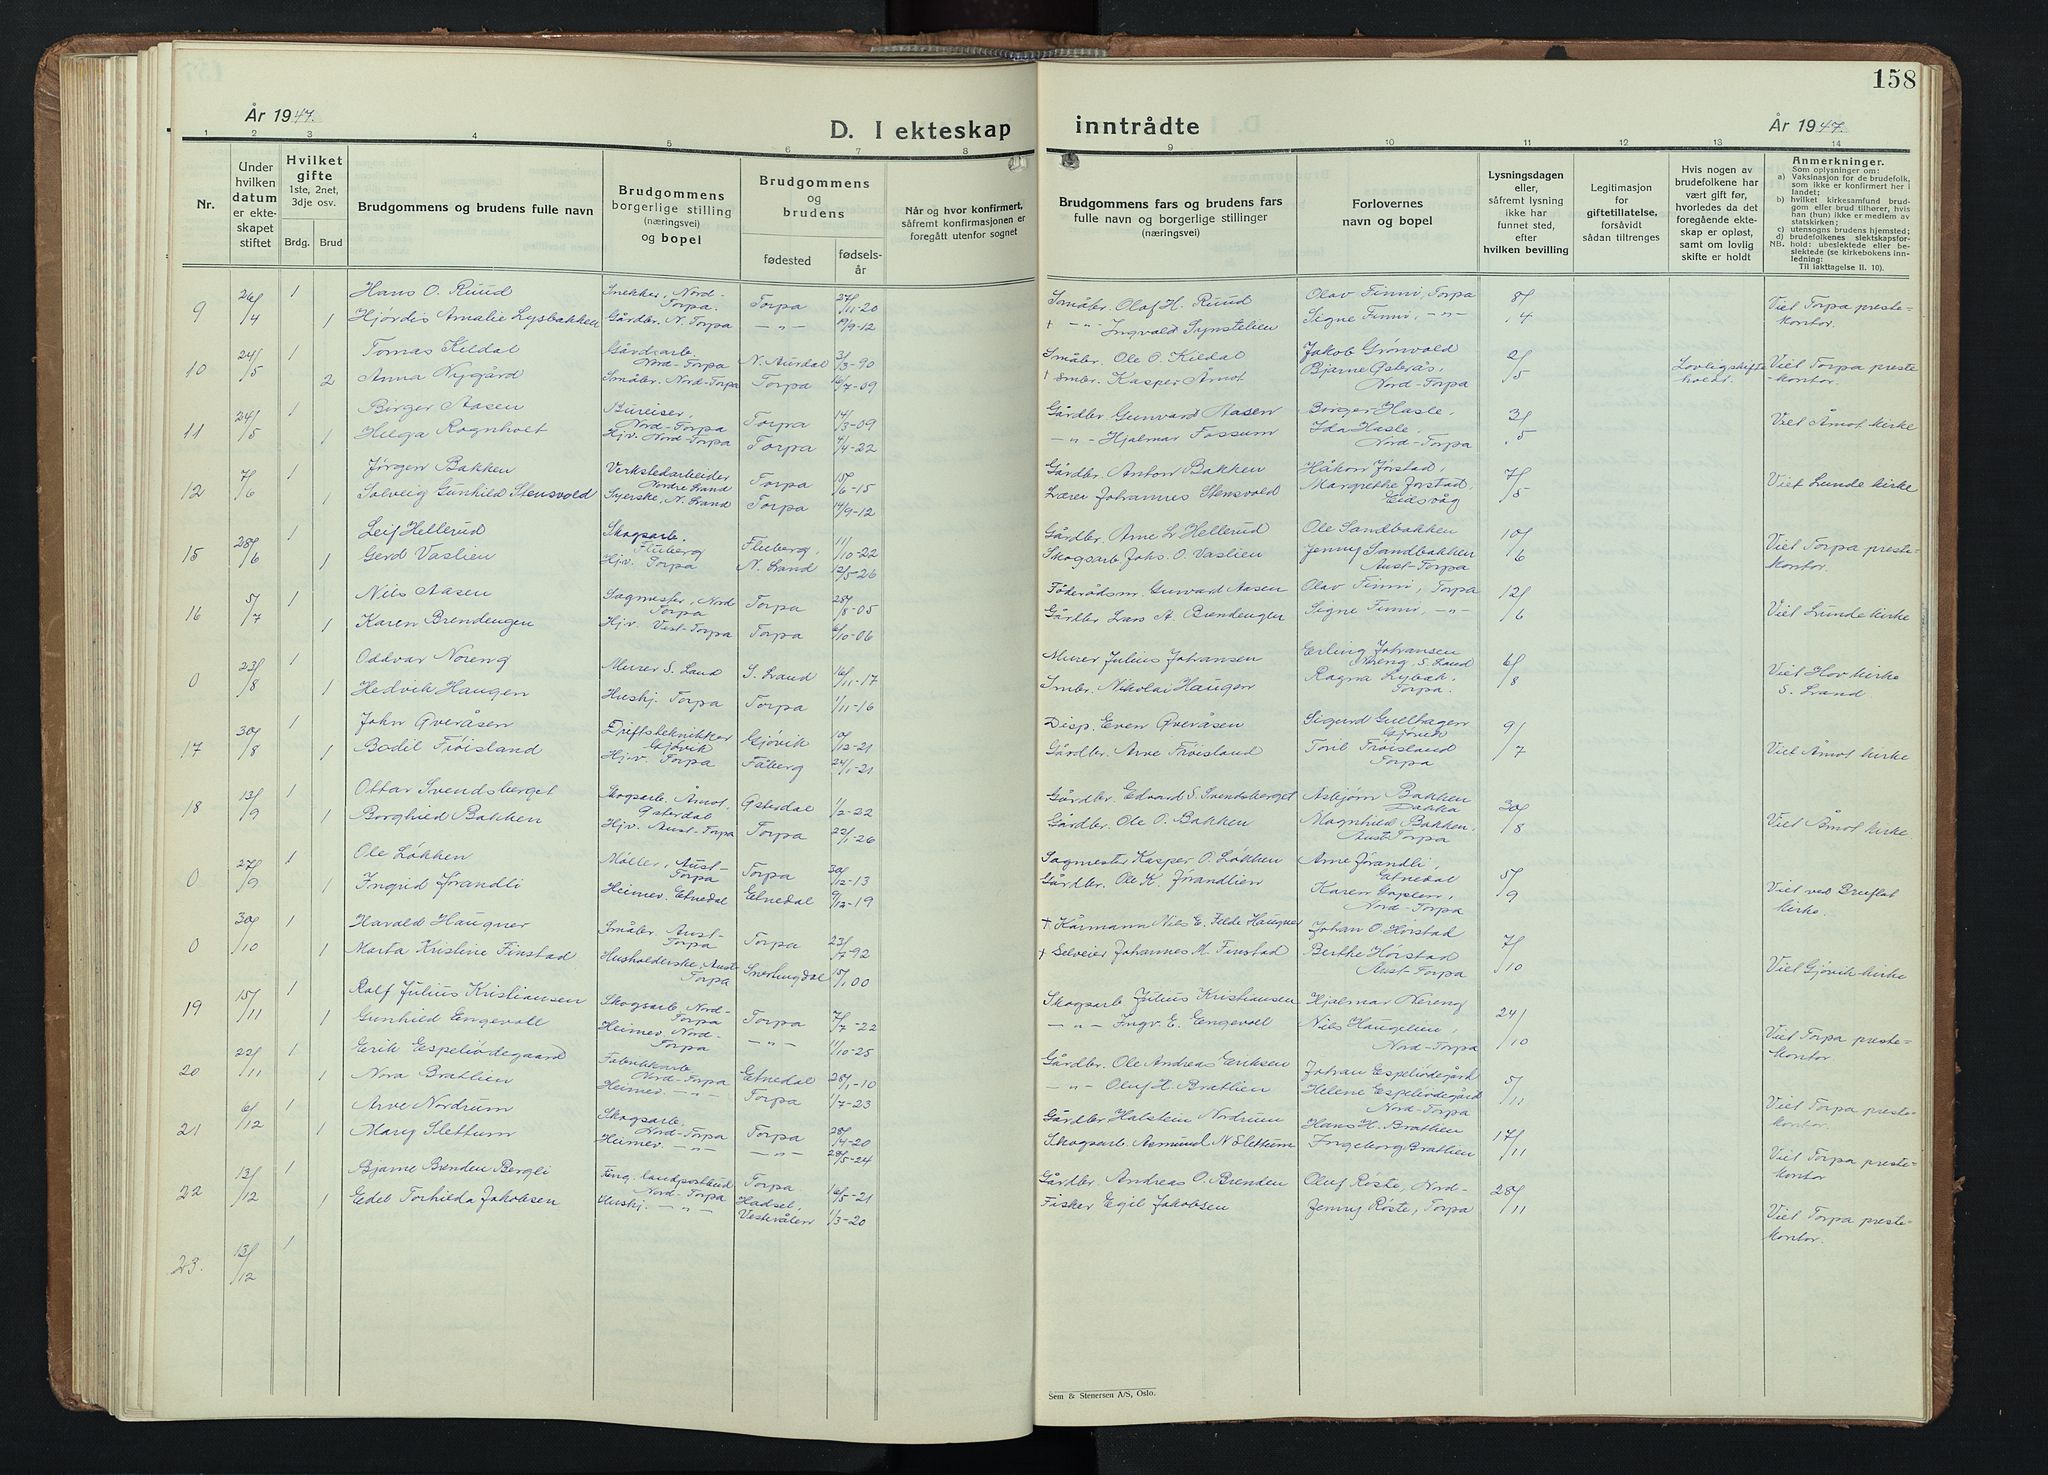 158
År 1947.
D. I ekteskap inntrådte
År 1947.
1 2 3 4 5 6 7 8 9 10 11 12 13 14
Nr.
Under hvilken datum er ekteskapet stiftet
Hvilket gifte 1ste, 2net, 3dje osv.
Brdg. Brud
Brudgommens og brudens fulle navn
Brudgommens borgerlige stilling (næringsvei) og bopel
Brudgommens og brudens
fødested
fødselsår
Når og hvor konfirmert, såfremt konfirmasjonen er foregått utenfor sognet
Brudgommens fars og brudens fars fulle navn og borgerlige stillinger (næringsvei)
Forlovernes navn og bopel
Lysningsdagen eller, såfremt lysning ikke har funnet sted, efter hvilken bevilling
Legitimasjon for giftetillatelse, forsåvidt sådan tiltrenges
Hvis nogen av brudefolkene har vært gift før, hvorledes da det foregående ekteskap er opløst, samt om lovlig skifte er holdt
Anmerkninger.
Som oplysninger om:
a) Vaksinasjon for de brudefolk, som ikke er konfirmert her i landet;
b) hvilket kirkesamfund brudgom eller brud tilhører, hvis han (hun) ikke er medlem av statskirken;
c) utensogns brudens hjemsted;
d) brudefolkenes slektskapsforhold: ubeslektede eller beslektede (se kirkebokens innledning:
NB.
Til iakttagelse II. 10).
9 26/4 1 Hans O. Ruud Snekker, Nord-Torpa. Torpa 27/11-20 Småbr. Olaf H. Ruud Olav Finni, Torpa 8/4 Viet Torpa prestekontor.
1 Hjørdis Amalie Lysbakken Gårdbr. N. Torpa -"- 19/9-12 + -"- Ingvald Synstelien Signe Finni, -"-
10 24/5 1 Tomas Kildal Gårdsarb. Nord-Torpa N. Aurdal 3/3-90 Småbr. Ole O. Kildal Jakob Grønvold 2/5 Lovlig skifte holdt. Viet Torpa prestekontor.
2 Anna Nygård Småbr. Nord-Torpa Torpa 16/7-09 + Smbr. Kasper Åmot Bjarne Østerås, Nord-Torpa
11 24/5 1 Birger Aasen Bureiser, Nord-Torpa Torpa 14/3-09 Gårdbr. Gunvard Aasen Borger Hasle, 3/5 Viet Åmot kirke
1 Helga Rognholt Hjv. Nord-Torpa Torpa 4/4-22 -"- Hjalmar Fossum Ida Hasle, Nord-Torpa
12 7/6 1 Jørgen Bakken Verkstedarbeider Nordre Land Torpa 15/6-15 Gårdbr. Anton Bakken Håkon Jørstad, 7/5 Viet Lunde kirke
1 Solveig Gunhild Stensvold Syerske, N. Land Torpa 14/9-12 Lærer Johannes Stensvold Margrethe Jørstad, Eidsvåg
15 28/6 1 Leif Hellerud Skogsarb. Fluberg Fluberg, 11/10-22 Gårdbr. Arne L Hellerud Ole Sandbakken 10/6 Viet Torpa prestekontor.
1 Gerd Vaslien Hjv. Torpa N. Land 12/5-26 Skogsarb Johs. O. Vaslien Jenny Sandbakken Aust-Torpa
16 5/7 1 Nils Aasen Sagmester, Nord Torpa Torpa 28/8-05 Føderådsm. Gunvard Aasen Olav Finni, Torpa 12/6 Viet Lunde kirke
1 Karen Brendengen Hjv. Vest-Torpa Torpa 6/10-06 Gårdbr Lars A. Brendengen Signe Finni, -"-
0 23/8 1 Oddvar Noreng Murer S. Land S. Land 16/11-17 Murer Julius Johansen Erling Johansen Nereng, S. Land 6/8 Viet Hov kirke S. Land
1 Hedvik Haugen Hushj. Torpa Torpa 1/11-16 Smbr. Nikolai Haugen Ragna Lybæk, Torpa.
17 30/8 1 John Øveråsen Driftstekniker Gjøvik Gjøvik 10/12-21 Disp. Even Øveråsen Sigurd Gullhagen Gjøvik 9/7 Viet Åmot kirke
1 Bodil Frøisland Hjv. Torpa Fåberg 24/1-21 Gårdbr. Arve Frøisland Toril Frøisland Torpa
18 13/9 1 Ottar Svendsberget Skogsarb. Åmot, Østerdal Østerdal 1/2-22 Gårdbr. Edvard S. Svendsberget Asbjørn Bakken Dokka 30/8 Viet Åmot kirke
1 Borghild Bakken Hjv. Aust-Torpa Torpa 22/1-26 Gårdbr. Ole O. Bakken Magnhild Bakken, Aust-Torpa
0 27/9 1 Ole Løkken Møller, Aust-Torpa Torpa 30/12-13 Sagmester Kasper O. Løkken Arne Jørandli, Etnedal 5/9 Viet ved Bruflat kirke.
1 Ingrid Jørandli Heimev. Etnedal Etnedal 9/12-19 Gårdbr. Ole K. Jørandlien Karen Goplen, Nord-Torpa
0 30/10 1 Harald Haugner Småbr. Aust-Torpa Torpa 23/7-92 + Kårmann Nils E. Felde Haugner Johan O. Hørstad 7/10 Viet Gjøvik kirke
1 Marta Kristine Finstad Husholderske, Aust Torpa Snertingdal 15/1 00 + Selveier Johannes M. Finstad Berthe Hørstad Aust-Torpa
19 15/11 1 Rolf Julius Kristiansen Skogsarb. Nord-Torpa Torpa 7/7-22 Skogsarb Julius Kristiansen Hjalmar Nereng 24/10 Viet Torpa prestekontor
1 Gunhild Engevoll Heimev. Nord-Torpa -"- 11/10-25 -"- Ingv. E. Engevoll Nils Haugelien, Nord-Torpa
20 22/11 1 Erik Espeliødegaard Fabrikkarb Nord-Torpa Etnedal 28/1-10 Gårdbr. Ole Andreas Eriksen Johan Espeliødegård 5/11 Viet Torpa prestekontor.
1 Nora Bratlien Heimev. -"- Torpa 1/7-23 -"- Oluf H. Bratlien Helene Espeliødegård Nord-Torpa
21 6/12 1 Arve Nordrum Skogsarb. Nord-Torpa Torpa 28/4-20 Gårdbr Halstein Nordrum Hans H. Bratlien 17/11 Viet Torpa prestekontor
1 Mary Slettum Heimev. -"- -"- 28/5-24 Skogsarb Asmund N Slettum Ingeborg Bratlien
22 13/12 1 Bjarne Brenden Bergli Fung. landpostbud Nord-Torpa Torpa 16/5-21 Gårdbr. Andreas O. Brenden Oluf Røste, Nord- 28/11 Viet Torpa prestekontor.
1 Edel Torhilda Jakobsen Hushj. -"- Hadsel, Vesterålen 1/3-20 Fisker Egil Jakobsen Jenny Røste, Torpa
23. 13/12 1
Sem & Stenersen A/S, Oslo.